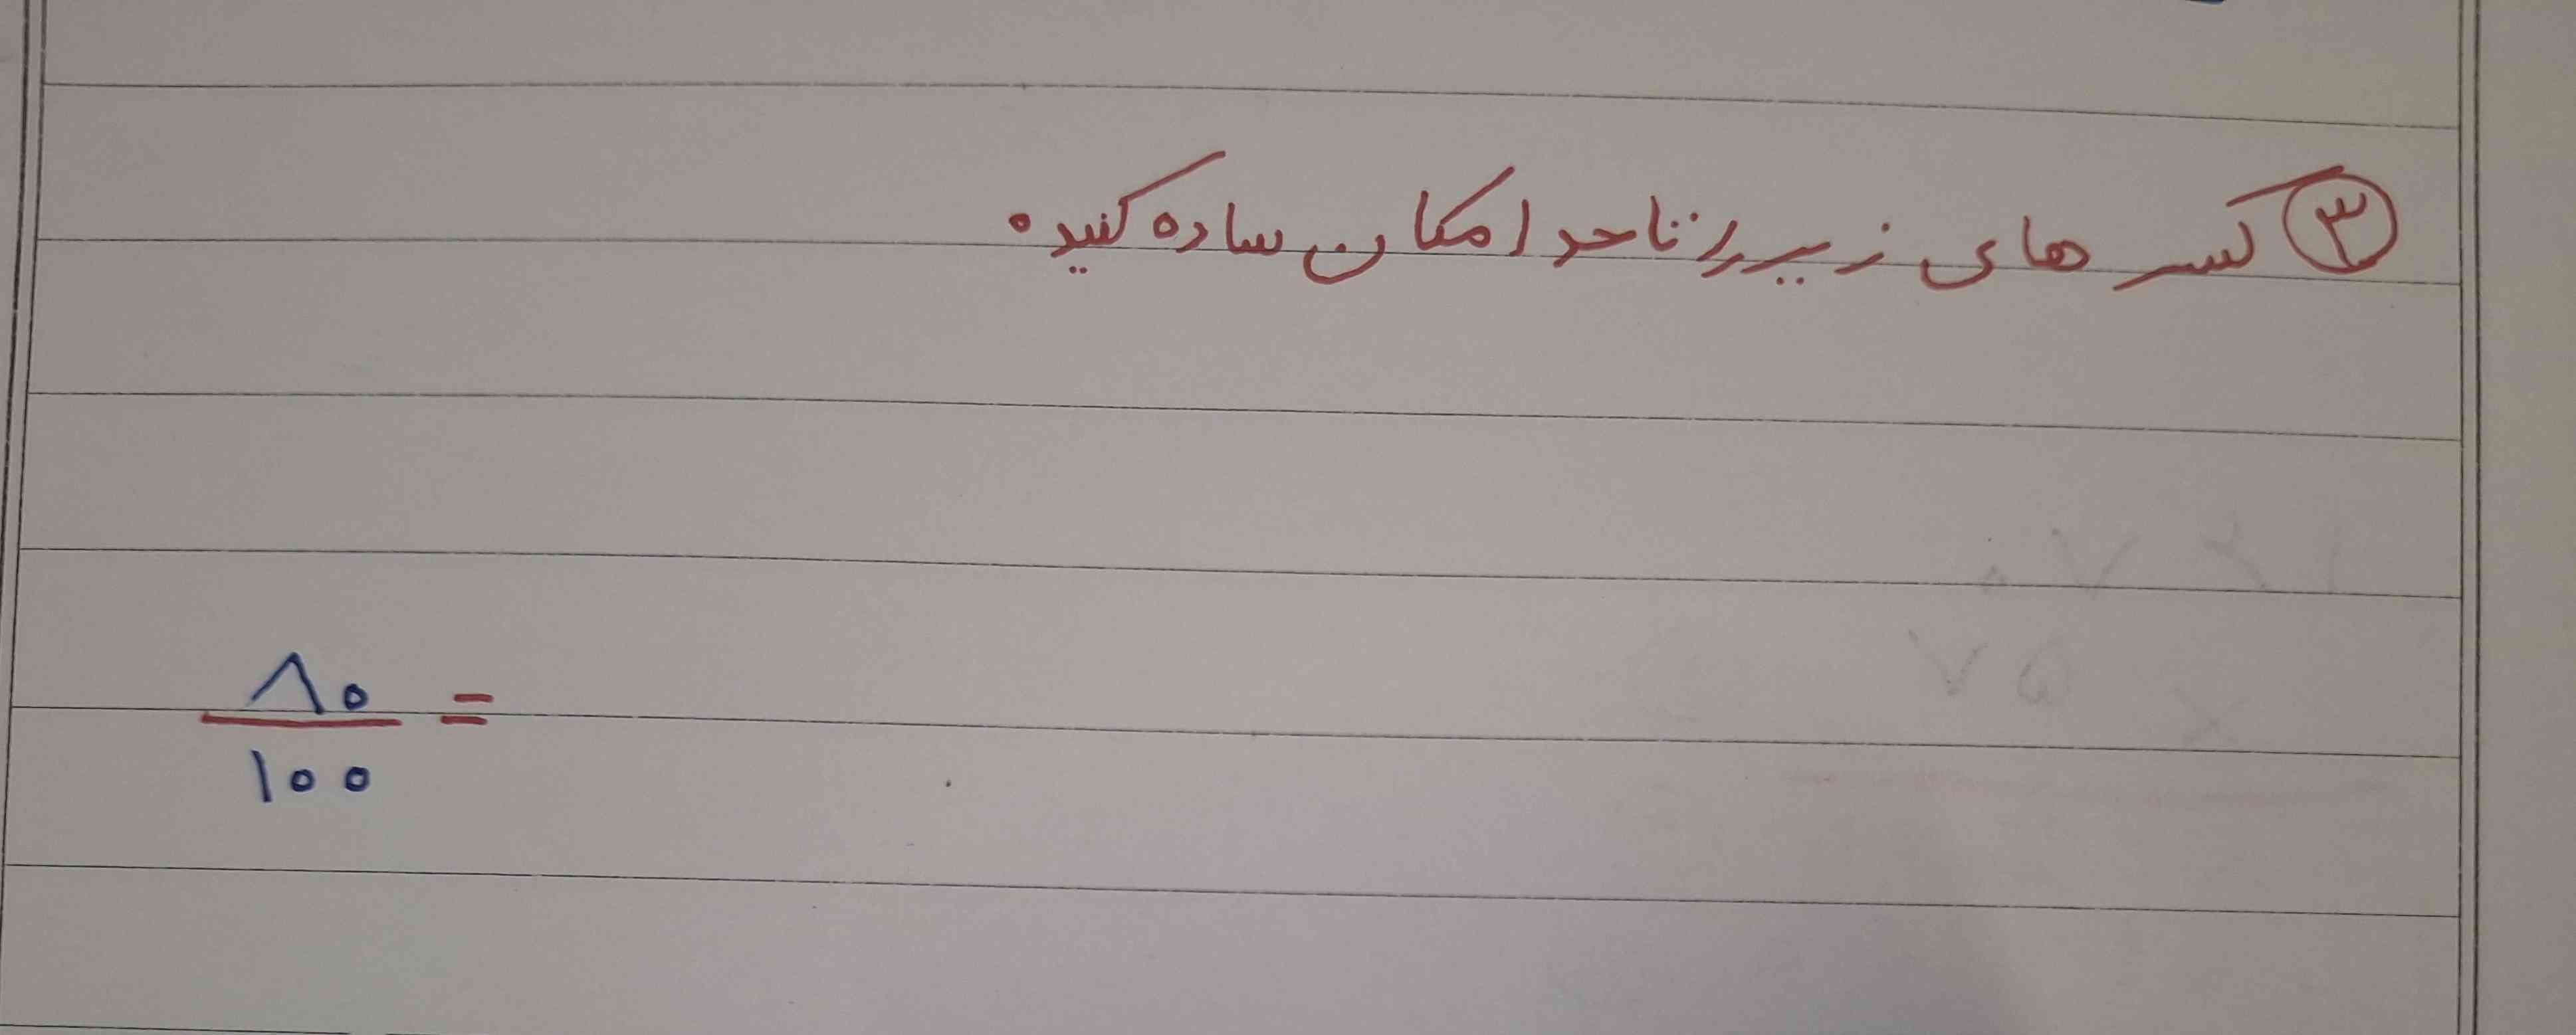 ۳ کسر های زیر را تا حد امکان ساده کنید.
۸۰
۱۰۰ =